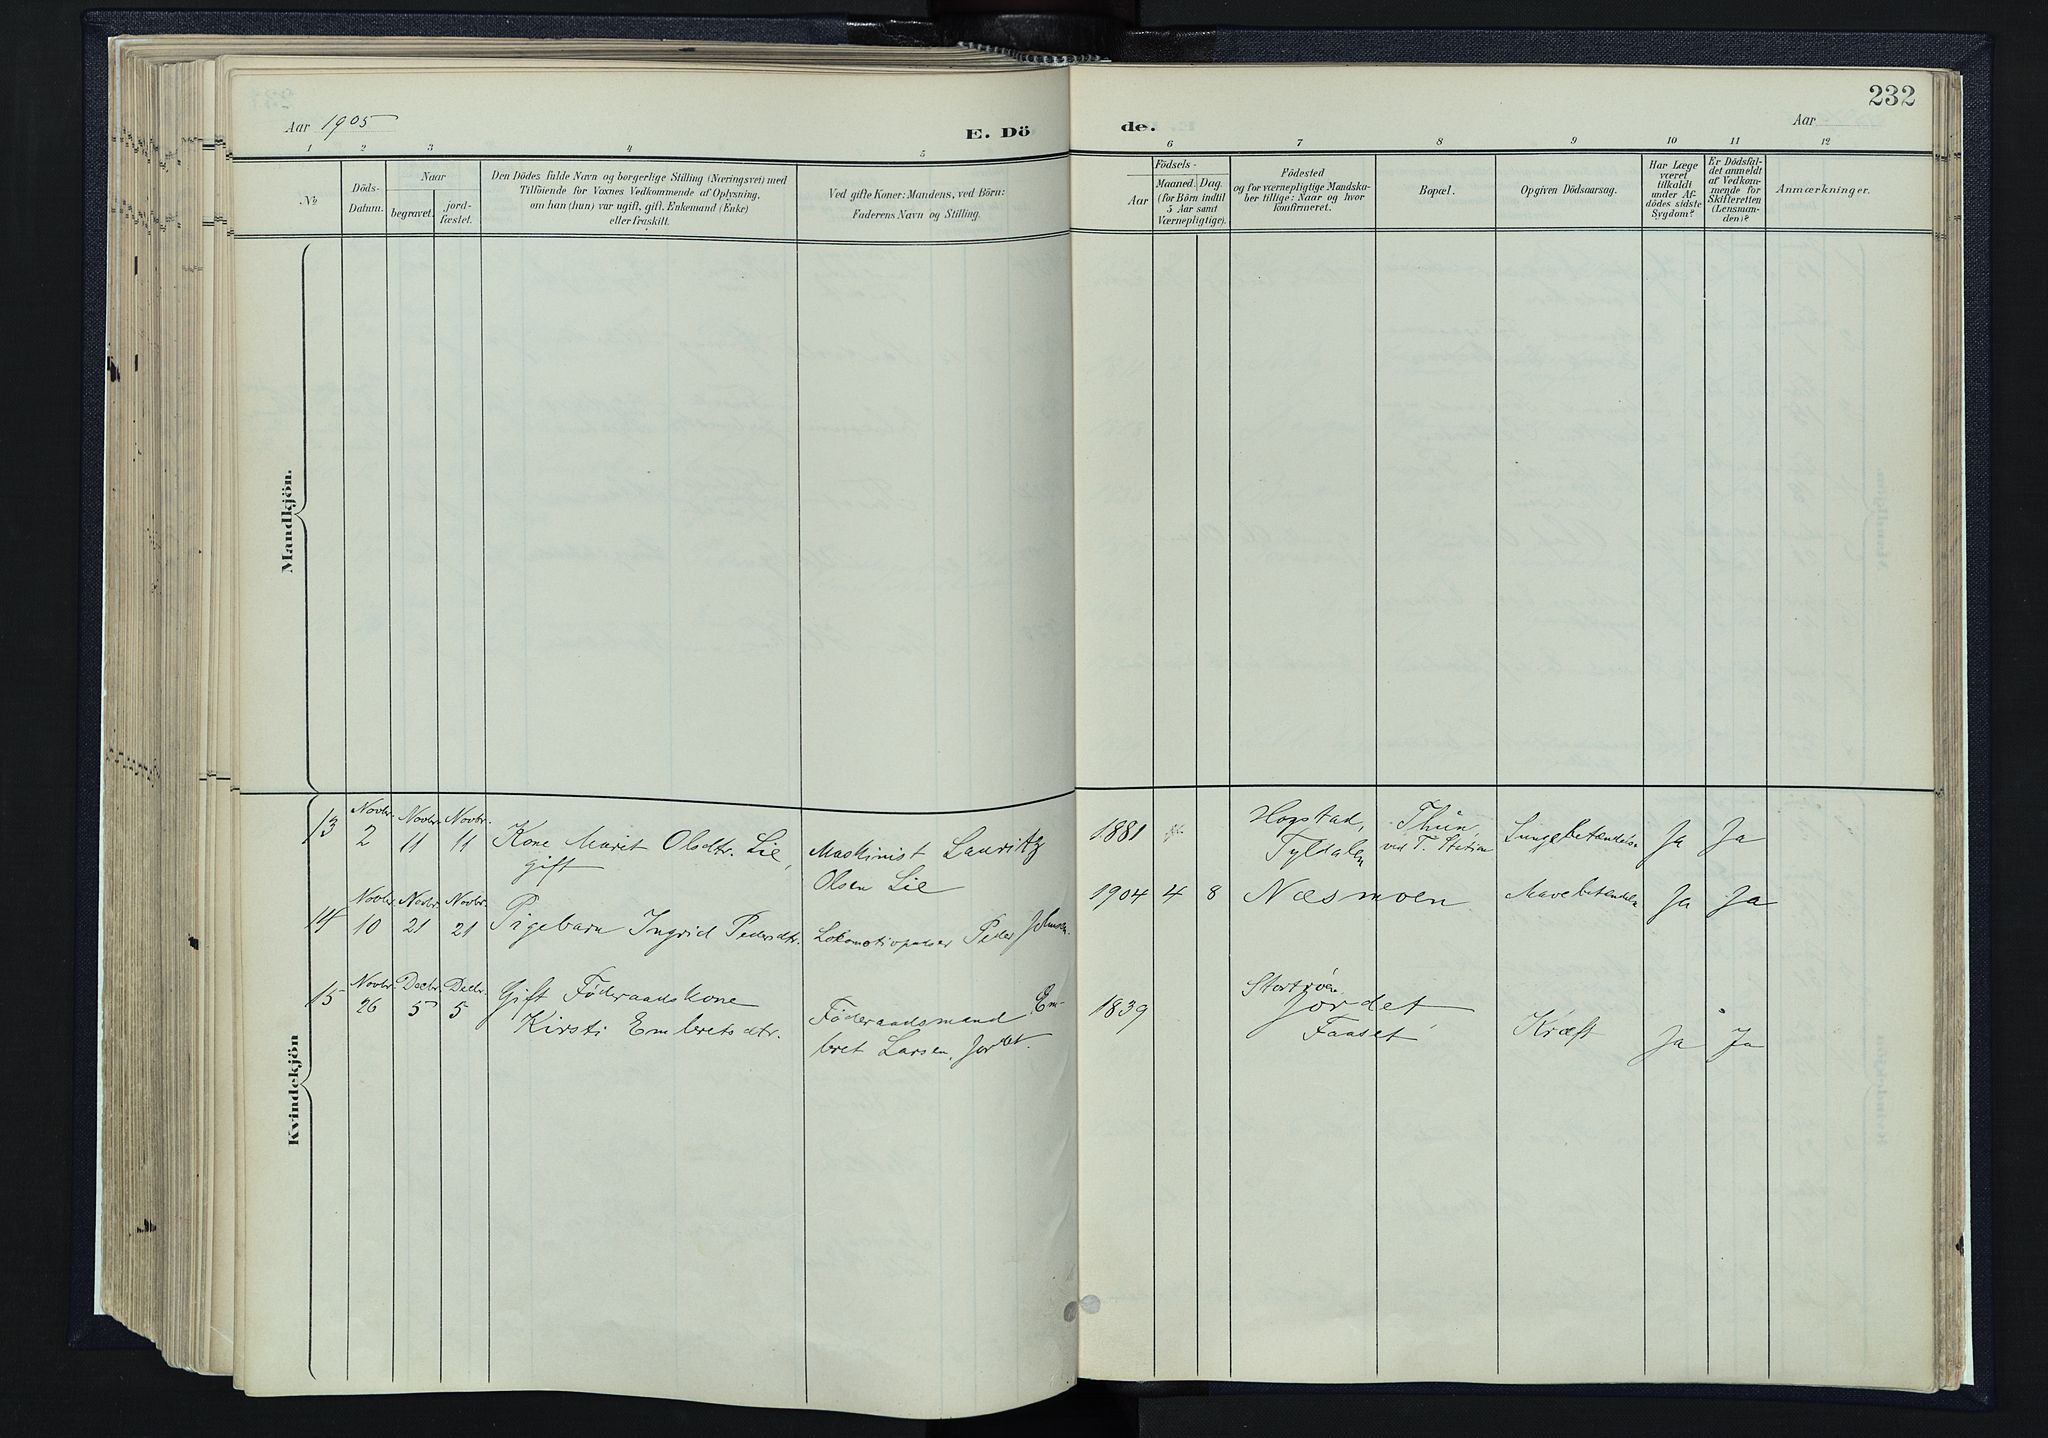 232
Aar 1905
E. Dö
de.
Aar
1 2 3 4 5 6 7 8 9 10 11 12
№
Döds-
Datum.
Naar
begravet.
jord-
fæstet.
Den Dödes fulde Navn og borgerlige Stilling (Næringsvei) med
Tilföiende for Voxnes Vedkommende af Oplysning,
om han (hun) var ugift, gift, Enkemand (Enke)
eller fraskilt.
Ved gifte Koner: Mandens, ved Börn:
Faderens Navn og Stilling.
Födsels-
Aar
Maaned. Dag.
(for Börn indtil
5 Aar samt
Værnepligtige).
Födested
og for værnepligtige Mandska-
ber tillige: Naar og hvor
konfirmeret.
Bopæl.
Opgiven Dödsaarsag.
Har Læge
været
tilkaldt
under Af-
dödes sidste
Sygdom?
Er Dödsfal-
det anmeldt
af Vedkom-
mende for
Skifteretten
(Lensman-
den)?
Anmærkninger.
Mandkjön.
Kvindekjön
13
Novbr.
2
Novbr.
11
Novbr.
11
Kone Marit Olsdtr. Lie,
gift
Maskinist Lauritz
Olsen Lie
1881
Hogstad,
Tyldalen
Thun,
ved T. Station
Lungebetændelse
Ja
Ja
14
Novbr.
10
Novbr.
21
Novbr.
21
Pigebarn Ingrid Pedersdtr.
Lokomotivpudser Peder Johnsen.
1904 4 8
Næsmoen
Mavebetændelse
Ja
Ja
15
Novbr.
26
Decbr.
5
Decbr.
5
Gift Föderaadskone
Kirsti Embretsdtr.
Föderaadsmand Em-
bret Larsen, Jordet.
1839
Stortröen
Jordet
Faaset
Kræft
Ja
Ja